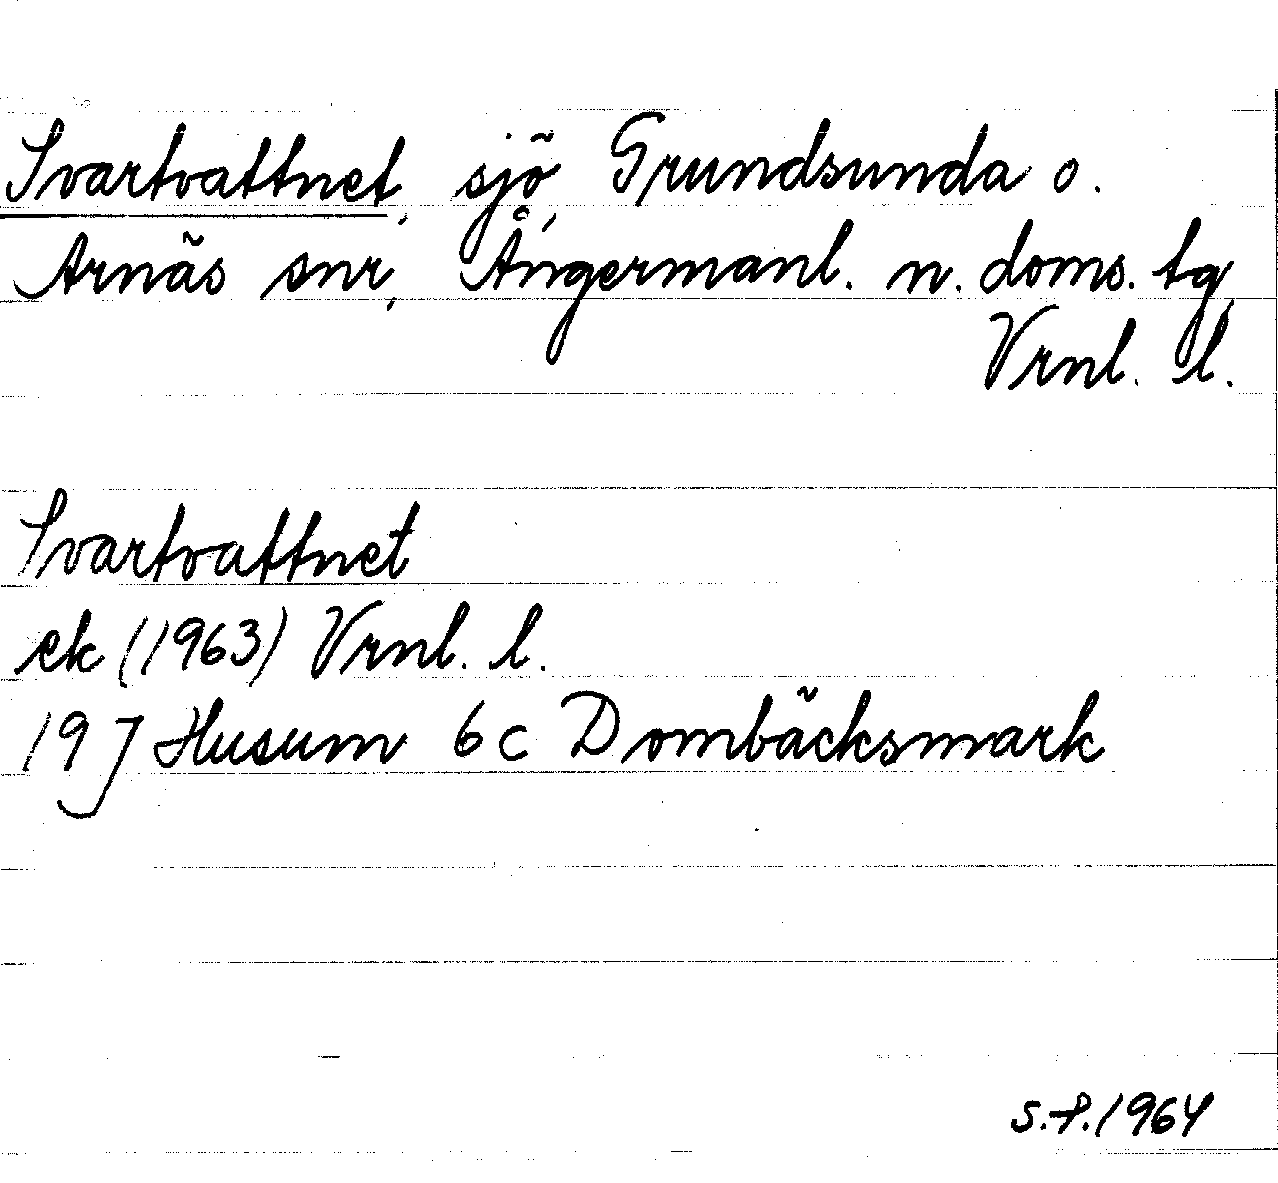 Svartvattnet, sjö, Grundsunda o.
Arnäs snr, Ångermanl. n. doms. tg,
Vrnl. l.
Svartvattnet
ek (1963) Vrnl. l.
19 J Husum 6 c Dombäcksmark
S.P. 1964